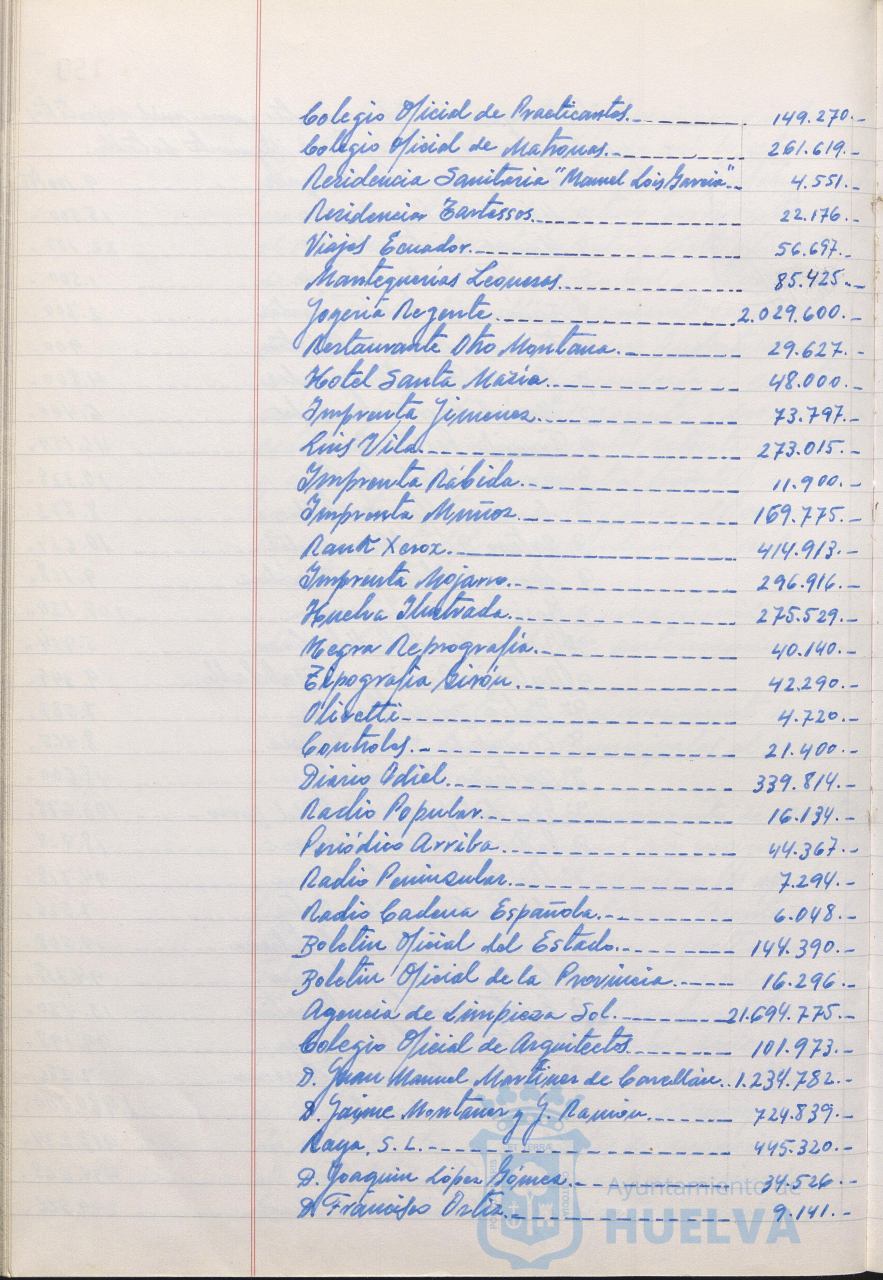 Colegio Oficial de Practicantes.------- 149.270.-
Colegio Oficial de Matronas.------- 261.619.-
Residencia Sanitaria "Manuel Lois Garcia".- 4.551.-
Residencia Tartessos.------- 22.176.-
Viajes Ecuador.------- 56.697.-
Mantequerías Leonesas.------- 85.425.-
Joyería Regente.------- 2.029.600.-
Restaurante Otro Montana.------- 29.627.-
Hotel Santa María.------- 48.000.-
Imprenta Jimenez.------- 73.797.-
Luis Vila.------- 273.015.-
Imprenta Rábida.------- 11.900.-
Imprenta Muñoz.------- 169.775.-
Rank Xerox.------- 414.913.-
Imprenta Mojarro.------- 296.916.-
Huelva Ilustrada.------- 275.529.-
Negra Reprografía.------- 40.140.-
Tipografía Girón.------- 42.290.-
Olivetti------- 4.720.-
Controles.------- 21.400.-
Diario Odiel.------- 339.814.-
Radio Popular.------- 16.134.-
Periódico Arriba.------- 44.367.-
Radio Peninsular.------- 7.294.-
Radio Cadena Española.------- 6.048.-
Boletin Oficial del Estado.------- 144.390.-
Boletin Oficial de la Provincia.----- 16.296.-
Agencia de Limpieza Sol.------- 21.694.775.-
Colegio Oficial de Arquitectos------- 101.973.-
D. Juan Manuel Martínez de Carvellán.. 1.234.782.-
D. Jaime Montaner y J. Ramón.------- 724.839.-
Raya, S.L.------- 445.320.-
D. Joaquin López Gómez.------- 34.526.-
D. Francisco Ortiz.------- 9.141.-
Ayuntamiento de
HUELVA